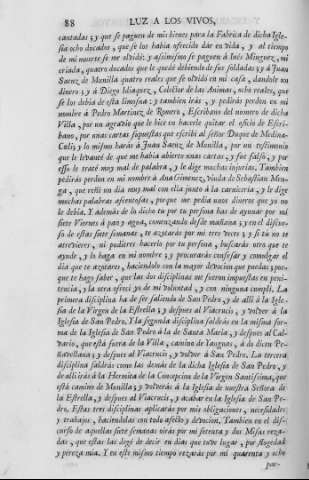 88 LUZ A LOS VIVOS,
cantadas; y que se paguen de mis bienes para la Fabrica de dicha Igle-
sia ocho ducados, que se los havia ofrecido dar en vida, y al tiempo
de mi muerte se me olvidò: y assimismo se paguen à Inès Minguez, mi
criada, quatro ducados que le quedè debiendo de sus soldadas; y à Juan
Saenz de Munilla quatro reales que se olvidò en mi casa, dandole un
dinero; y à Diego Idiaquez, Colector de las Animas, ocho reales, que
se los debia de esta limosna: y tambien iràs, y pediràs perdon en mi
nombre à Pedro Martinez de Romero, Escribano del numero de dicha
Villa, por un agravio que le hice en hacerle quitar el oficio de Escri-
bano, por unas cartas supuestas que escribì al señor Duque de Medina-
Celi; y lo mismo haràs à Juan Saenz de Munilla, por un testimonio
que le levantè de que me havia abierto unas cartas, y fue falso, y por
esso le tratè muy mal de palabra, y le dixe muchas injurias. Tambien
pediràs perdon en mi nombre à Ana Ximenez, viuda de Sebastian Men-
ga, que reñì un dia muy mal con ella junto à la carniceria, y le dixe
muchas palabras afrentosas, porque me pedia unos dineros que yo no
le debia. Y además de lo dicho tu por tu persona has de ayunar por mì
siete Viernes à pan y agua, comenzando desde mañana; y en el discur-
so de estas siete semanas, te azotaràs por mì tres veces; y si tu no te
atrevieres, ni pudieres hacerlo por tu persona, buscaràs otro que te
ayude, y lo haga en mi nombre; y procuraràs confesar y comulgar el
dia que te azotares, haciendolo con la mayor devocion que puedas; por-
que te hago saber, que las dos disciplinas me fueron impuestas en peni-
tencia, y la otra ofrecì yo de mi voluntad, y con ninguna cumplì. La
primera disciplina ha de ser saliendo de San Pedro, y de allì à la Igle-
sia de la Virgen de la Estrella; y despues al Viacrucis, y volver à la
Iglesia de San Pedro. Y la segunda disciplina saldràs en la misma for-
ma de la Iglesia de San Pedro à la de Santa Maria, y despues al Cal-
vario, que està fuera de la Villa, camino de Yanguas, à do dicen Pe-
 y despues al Viacrucis, y volver à San Pedro. La tercera
disciplina saldràs como las demás de la dicha Iglesia de San Pedro, y
de allì iràs à la Hermita de la Concepcion de la Virgen Santissima, que
està camino de Munilla; y volveràs à la Iglesia de nuestra Señora de
la Estrella, y despues al Viacrucis, y acabar en la Iglesia de San Pe-
dro. Estas tres disciplinas aplicaràs por mis obligaciones, necesidades
y trabajos, haciendolas con todo afecto y devocion. Tambien en el dis-
curso de aquestas siete semanas oiràs por mì setenta y dos Missas reza-
das, que estas las dexè de decir en dias que tuve lugar, por floxedad
y pereza mia. Y en este mismo tiempo rezaràs por mì quarenta y ocho
par-